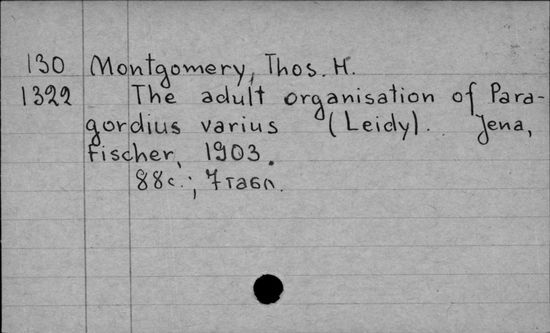 130 Montgomery, Thos. H.
1322 The adult organisation of Para-
gordius varius (Leidy). Jena,
Fischer, 1903.
88с.; 7 табл.